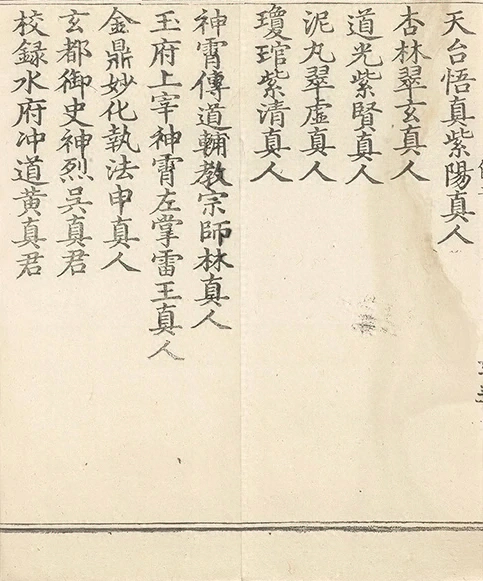 天台悟真紫陽真人
杏林翠玄真人
道光紫賢真人
泥丸翠虛真人
瓊琯紫清真人
神霄傳道輔教宗師林真人
玉府上宰神霄左掌雷王真人
金鼎妙化執法申真人
玄都御史神烈吳真君
校録水府冲道黃真君